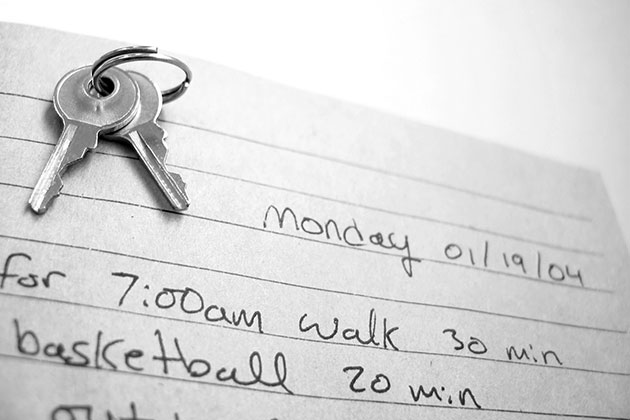 Monday 01/19/04
for 7:00am walk 30 min
basketball 20 min